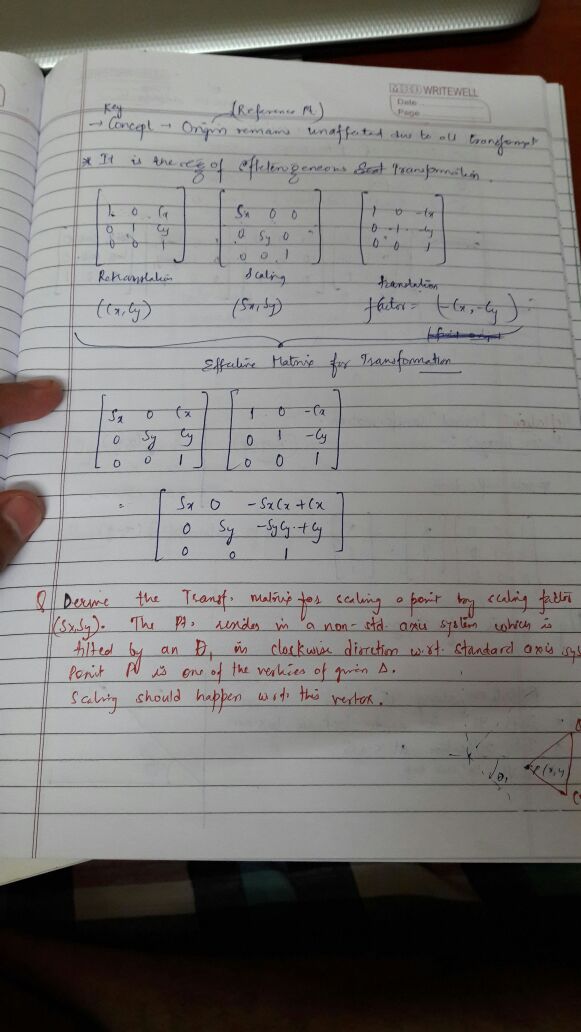 WRITEWELL
Date
Page
Key (Reference Pt.)
→ Concept → Origin remains unaffected due to all transfompt
* It is the of Transformation.
1 0 Cx
0 1 Cy
0 0 1
Sx 0 0
0 Sy 0
0 0 1
1 0 -Cx
0 1 -Cy
0 0 1
Retranslation Scaling Translation
(Cx, Cy) (Sx, Sy) factor = (-Cx, -Cy)
Effective Matrix for Transformation
Sx 0 Cx
0 Sy Cy
0 0 1
1 0 -Cx
0 1 -Cy
0 0 1
= Sx 0 -SxCx + Cx
0 Sy -SyCy + Cy
0 0 1
Q Derive the Transf. matrix for scaling a point by scaling factor
(Sx, Sy). The Pt. resides in a non-std. axis system which is
tilted by an θ1 in clockwise direction w.r.t. standard axis sys
Point P is one of the vertices of given Δ.
Scaling should happen w.r.t. this vertex.
θ1
P(x, y